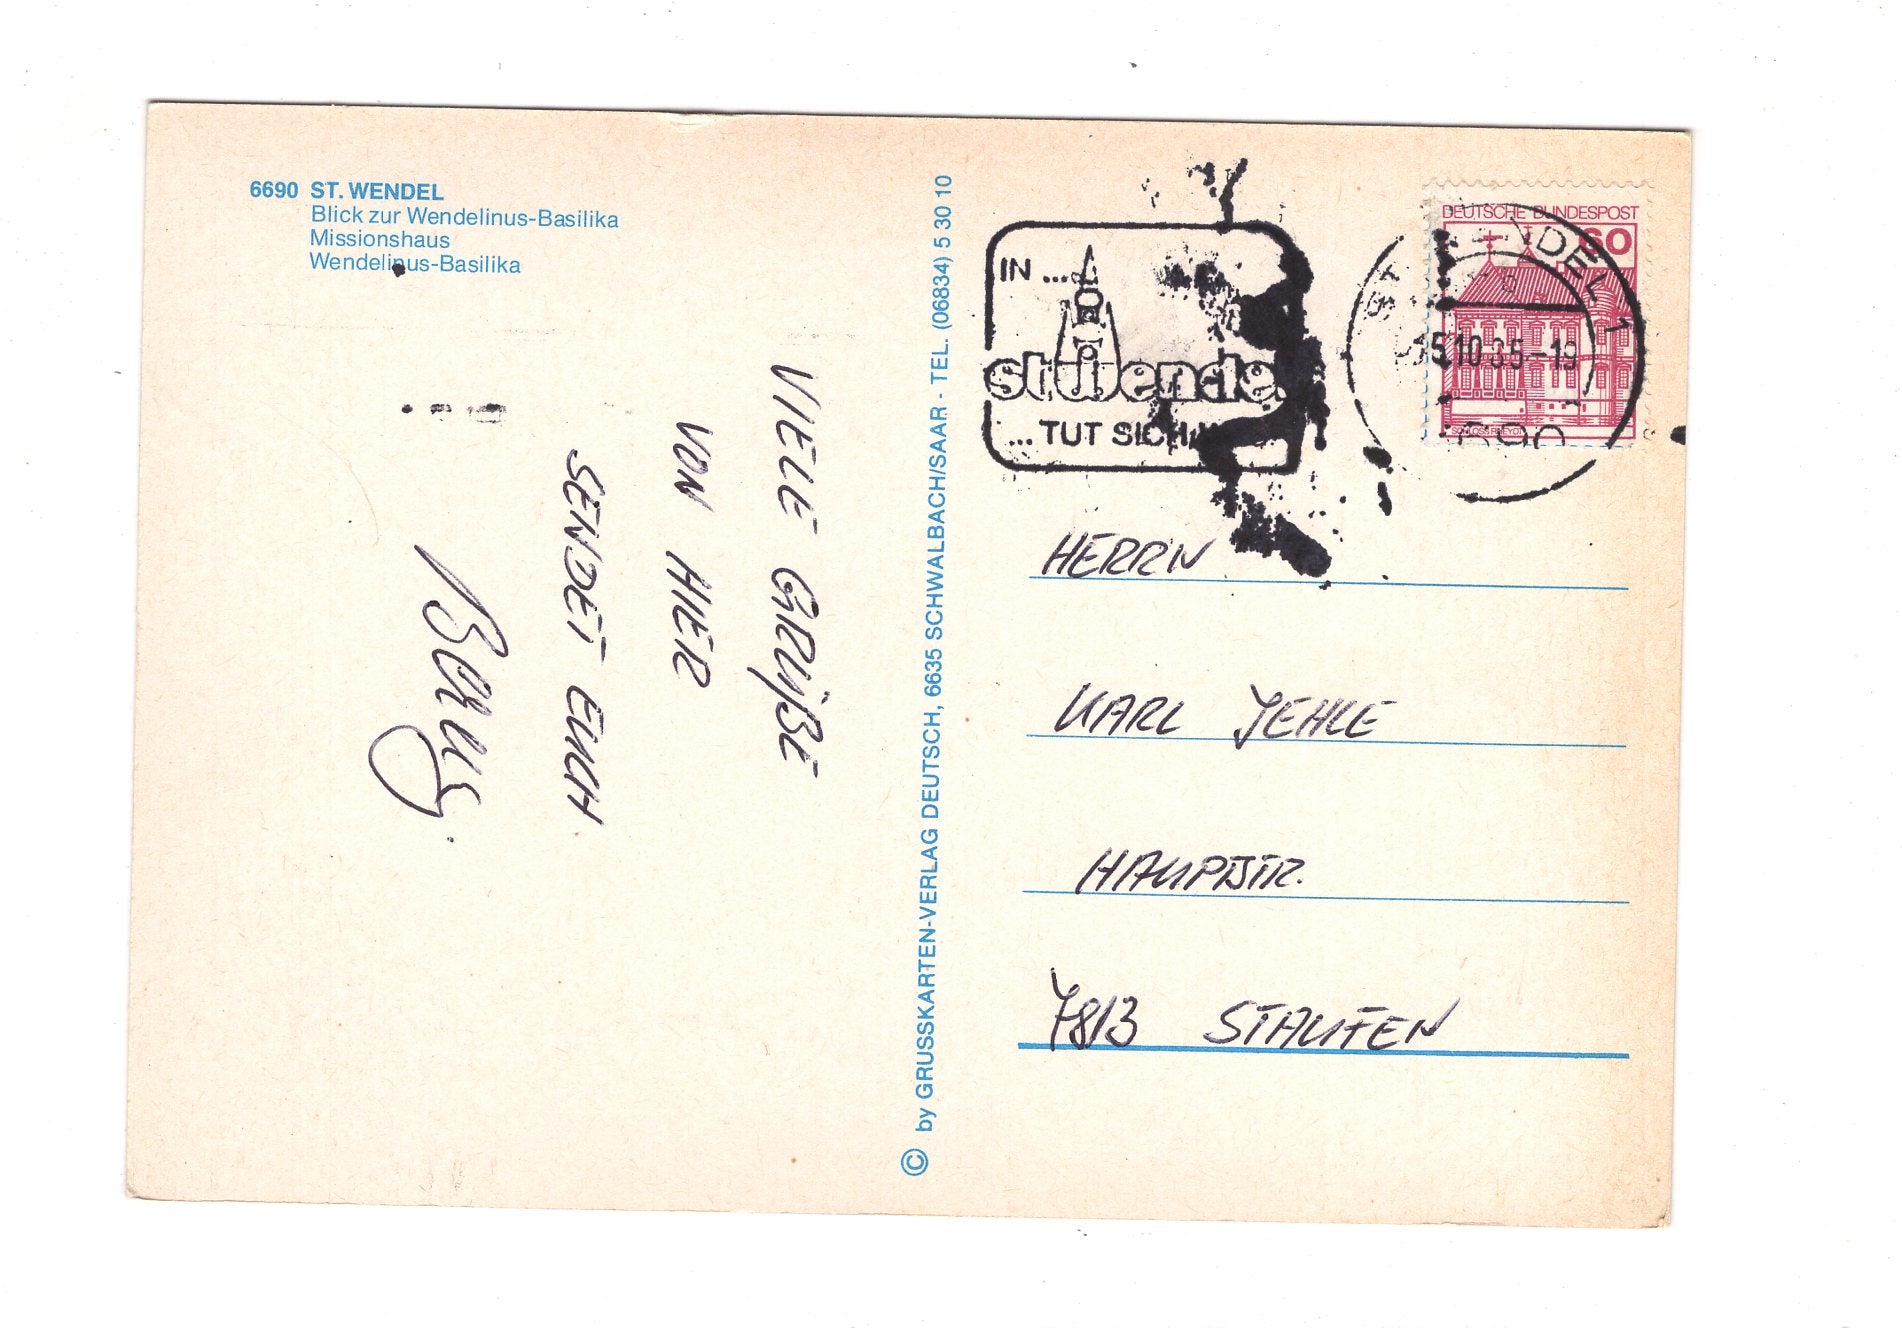 6690 ST. WENDEL
Blick zur Wendelinus-Basilika
Missionshaus
Wendelinus-Basilika
VIELE GRÜßE
VON HIER
SENDET EUCH
© by GRUSSKARTEN-VERLAG DEUTSCH, 6635 SCHWALBACH/SAAR - TEL. (06834) 5 30 10
IN ...
st.wendel
... TUT SICH
DEUTSCHE BUNDESPOST
60
ST. WENDEL 1
15.10.85-19
6690
HERRN
KARL JEHLE
HAUPTSTR.
7813 STAUFEN